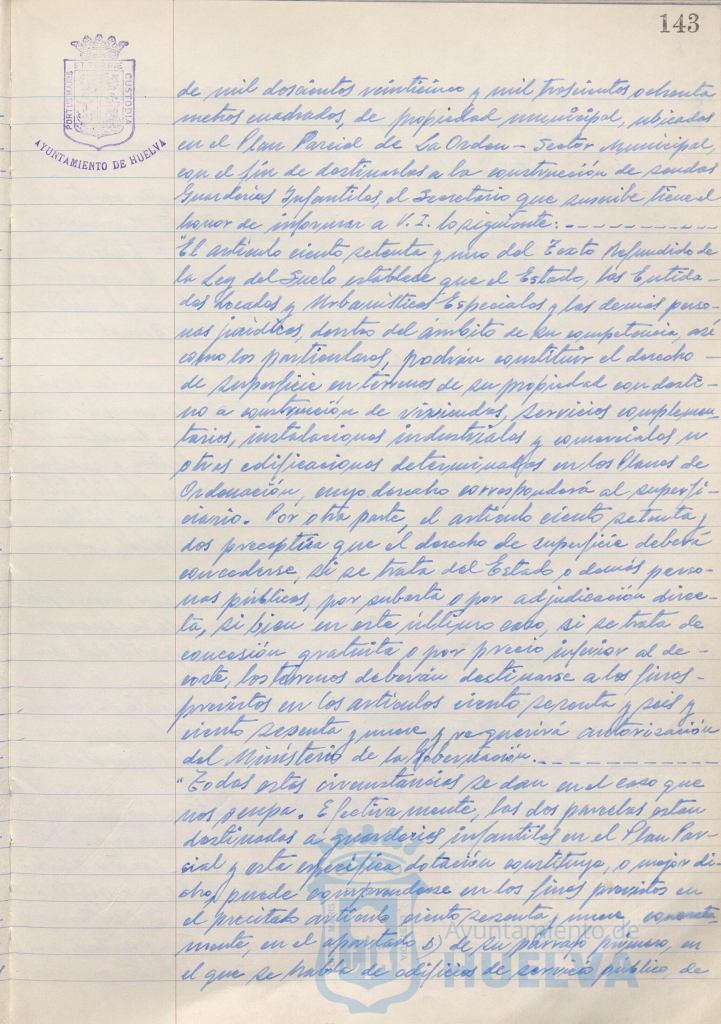 143
PORTUS MARIS ET TERRAE CUSTODIA
AYUNTAMIENTO DE HUELVA
de mil doscientos veinticinco y mil trescientos ochenta
metros cuadrados, de propiedad municipal, ubicadas
en el Plan Parcial de La Orden - Sector Municipal,
con el fin de destinarlas a la construcción de sendas
Guarderías Infantiles, el Secretario que suscribe tiene el
honor de informar a V. I. lo siguiente: - - - - - - - - - -
"El artículo ciento setenta y uno del Texto Refundido de
la Ley del Suelo establece que el Estado, las Entida-
des Locales y Urbanísticas Especiales y las demás perso-
nas jurídicas, dentro del ámbito de su competencia, así
como los particulares, podrán constituir el derecho -
de superficie en terrenos de su propiedad con desti-
no a construcción de viviendas, servicios complemen-
tarios, instalaciones industriales y comerciales u
otras edificaciones determinadas en los Planes de
Ordenación, cuyo derecho corresponderá al superfi-
ciario. Por otra parte, el artículo ciento setenta y
dos preceptúa que el derecho de superficie deberá
concederse, si se trata del Estado o demás perso-
nas públicas, por subasta o por adjudicación direc-
ta, si bien en este último caso, si se trata de
concesión gratuita o por precio inferior al de -
coste, los terrenos deberán destinarse a los fines -
previstos en los artículos ciento sesenta y seis y
ciento sesenta y nueve y requerirá autorización
del Ministerio de la Gobernación. - - - - - - - - - -
"Todas estas circunstancias se dan en el caso que
nos ocupa. Efectivamente, las dos parcelas están
destinadas a guarderías infantiles en el Plan Par-
cial y esta específica dotación constituye, o mejor di-
cho, puede comprenderse en los fines previstos en
el precitado artículo ciento sesenta y nueve, concreta-
mente, en el apartado b) de su párrafo primero, en
el que se habla de edificios de servicio público, de
Ayuntamiento de
HUELVA